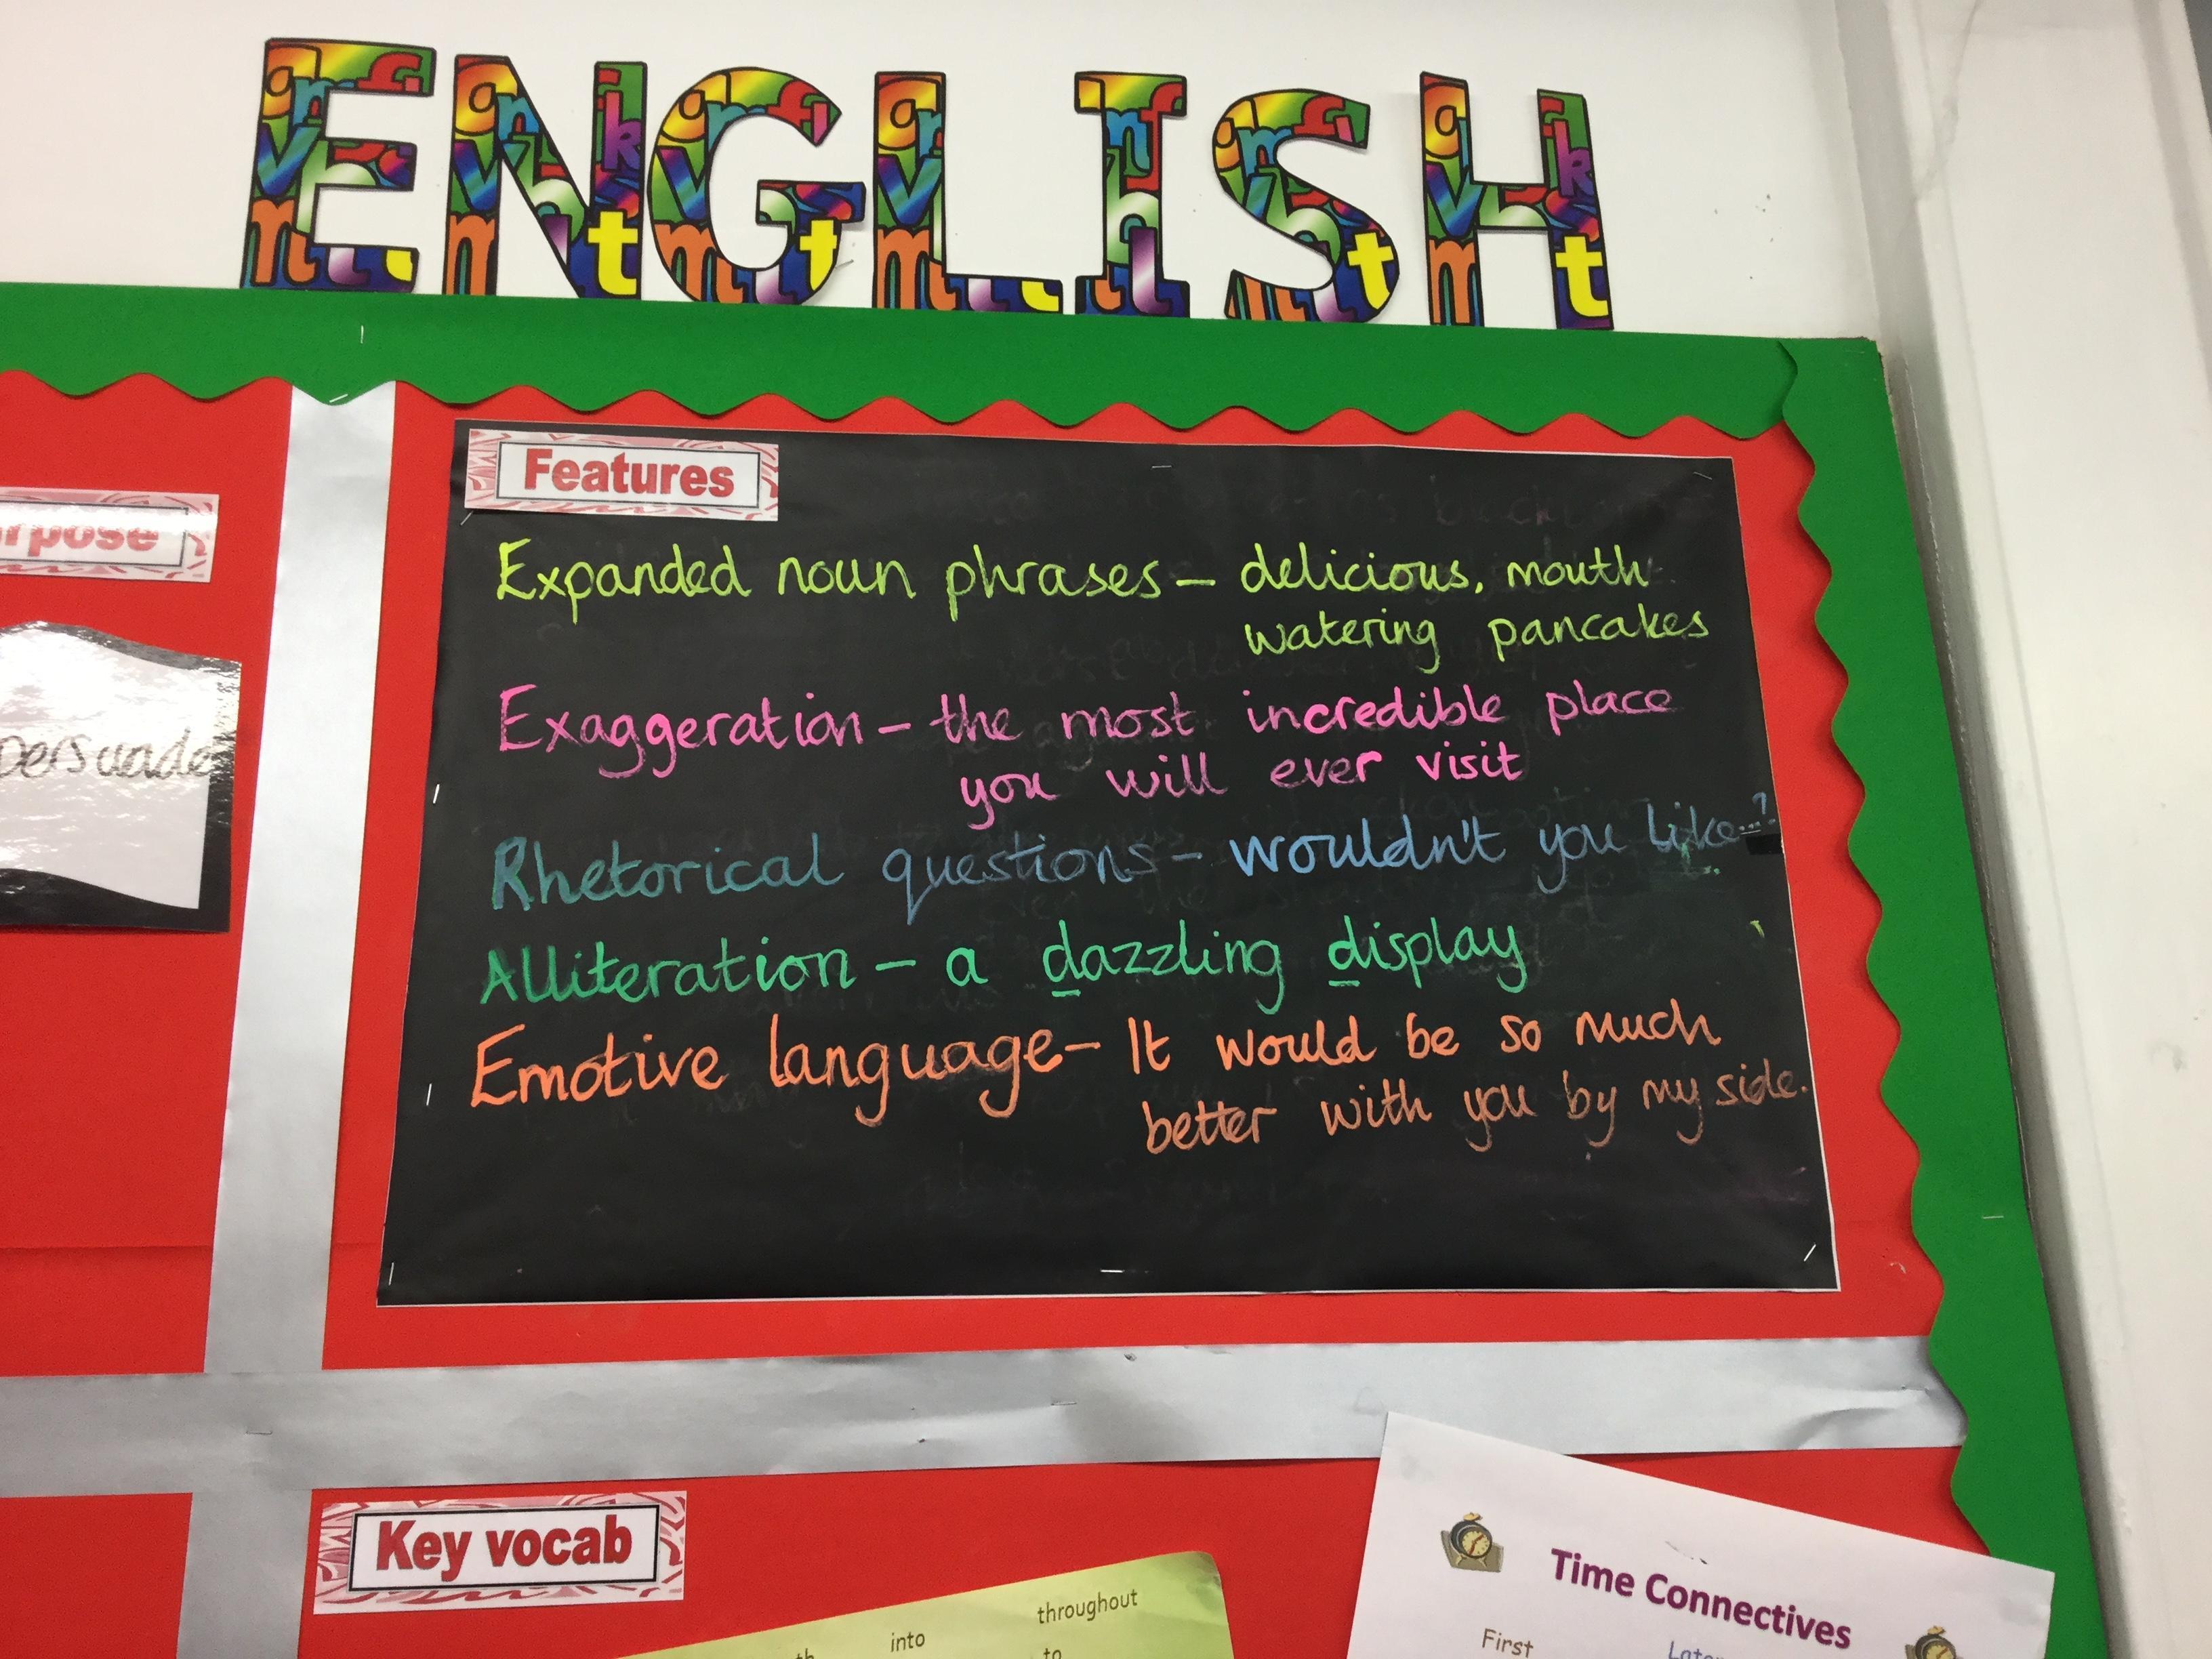 ENGLISH
Features
Expanded noun phrases – delicious, mouth
watering pancakes
Exaggeration – the most incredible place
you will ever visit
Rhetorical questions – wouldn't you like...?
Alliteration – a dazzling display
Emotive language – It would be so much
better with you by my side.
persuade
Key vocab
throughout
into
to
Time Connectives
First